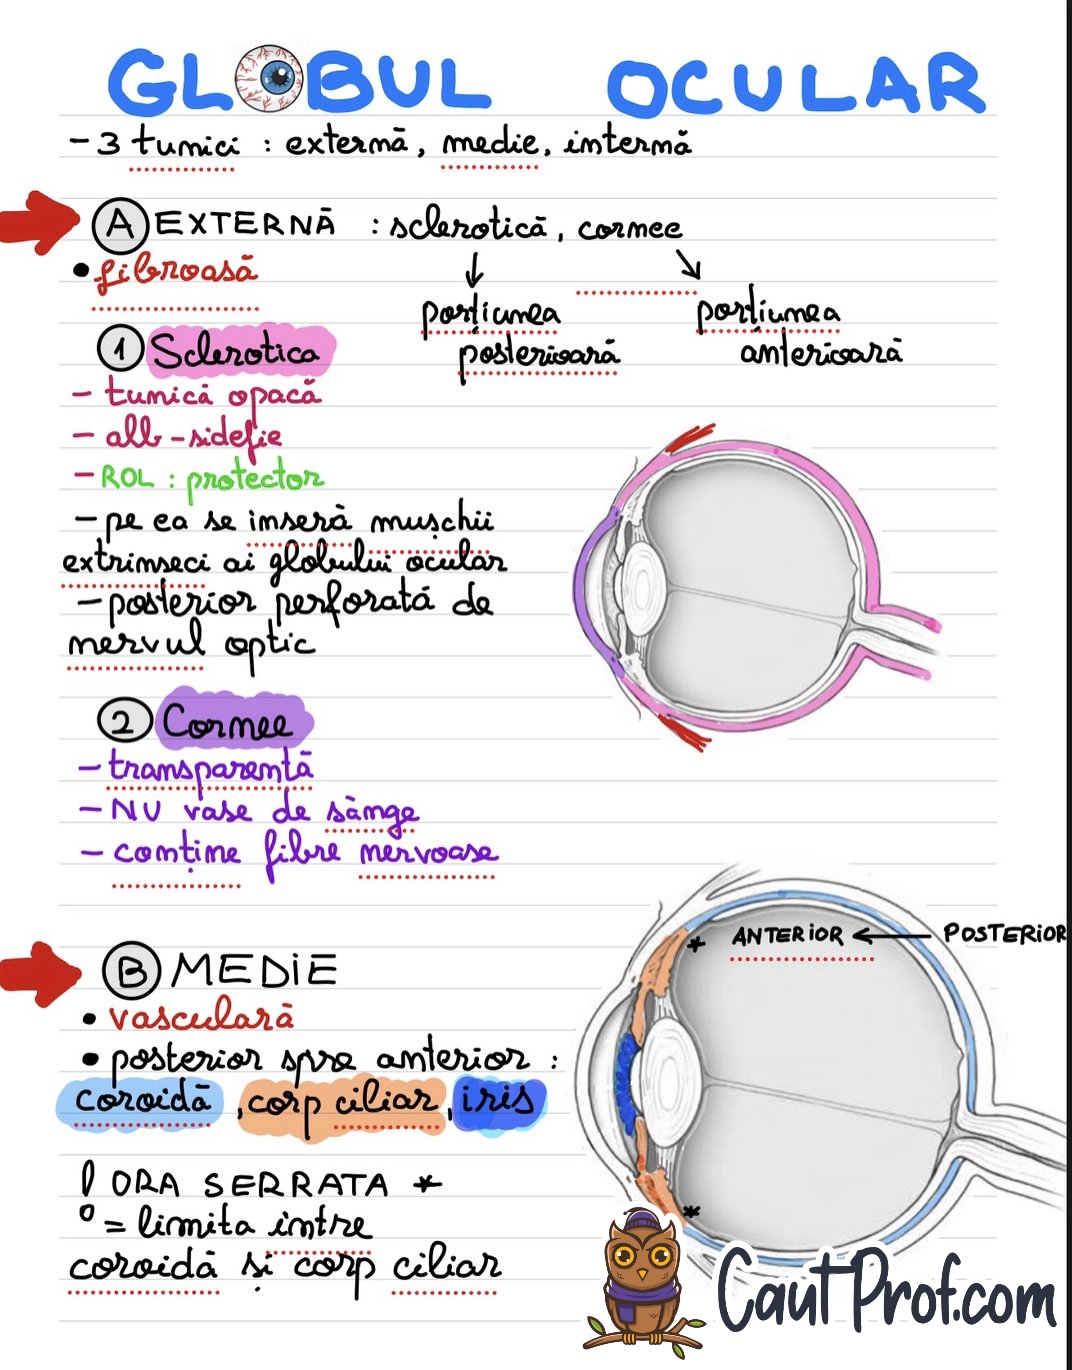 GLOBUL OCULAR
- 3 tunici : externă, medie, internă
A EXTERNĂ : sclerotică, cornee
• fibroasă
porțiunea posterioară
porțiunea anterioară
1 Sclerotica
- tunică opacă
- alb-sidefie
- ROL : protector
- pe ea se inseră mușchii
extrinseci ai globului ocular
- posterior perforată de
nervul optic
2 Cornee
- transparentă
- NU vase de sânge
- conține fibre nervoase
ANTERIOR ← POSTERIOR
B MEDIE
• vasculară
• posterior spre anterior :
coroidă, corp ciliar, iris
! ORA SERRATA *
= limita între
coroidă și corp ciliar
*
*
CautProf.com